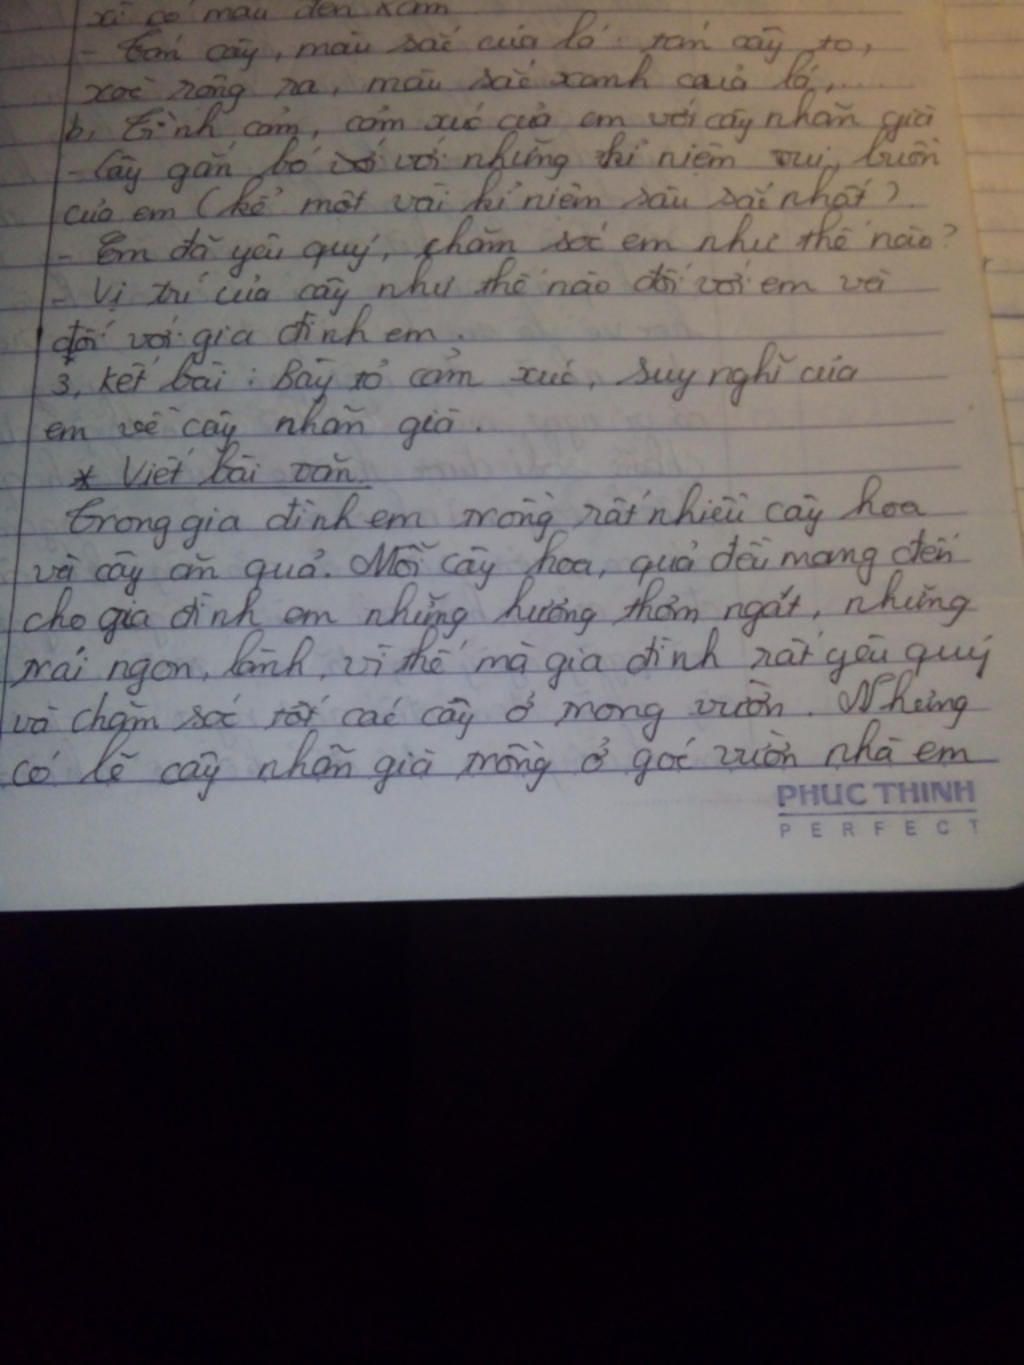 xì có màu đen xám
- Tán cây, màu sắc của lá: tán cây to,
xoè rộng ra, màu sắc xanh của lá,...
b, Tình cảm, cảm xúc của em với cây nhãn già
- Cây gắn bó với những kỉ niệm vui, buồn
của em (kể một vài kỉ niệm sâu sắc nhất).
- Em đã yêu quý, chăm sóc em như thế nào?
- Vị trí của cây như thế nào đối với em và
đối với gia đình em.
3, Kết bài: Bày tỏ cảm xúc, suy nghĩ của
em về cây nhãn già.
* Viết bài văn
Trong gia đình em trồng rất nhiều cây hoa
và cây ăn quả. Mỗi cây hoa, quả đều mang đến
cho gia đình em những hương thơm ngát, những
trái ngon, lành, vì thế mà gia đình rất yêu quý
và chăm sóc tốt các cây ở trong vườn. Nhưng
có lẽ cây nhãn già trồng ở góc vườn nhà em
PHUC THINH
PERFECT